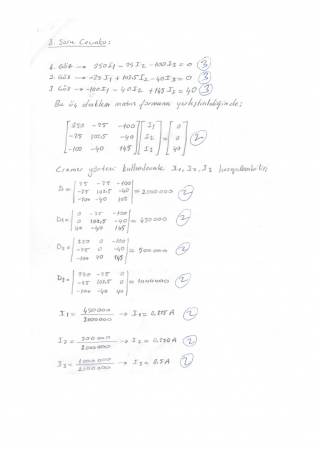 3. Soru Cevabı:
1. Göz → 250I1 - 25I2 - 100I3 = 0 (3)
2. Göz → -25I1 + 102.5I2 - 40I3 = 0 (3)
3. Göz → -100I1 - 40I2 + 145I3 = 40 (3)
Bu üç denklem matris formuna yerleştirildiğinde;
[250 -25 -100] [I1] [0]
[-25 102.5 -40] [I2] = [0] (2)
[-100 -40 145] [I3] [40]
Cramer yöntemi kullanılarak I1, I2, I3 hesaplanabilir.
|25 -25 -100|
D = |-25 102.5 -40| = 2000000 (2)
|-100 -40 145|
|0 -25 -100|
D1 = |0 102.5 -40| = 450000 (2)
|40 -40 145|
|250 0 -100|
D2 = |-25 0 -40| = 500000 (2)
|-100 40 145|
|250 -25 0|
D3 = |-25 102.5 0| = 1000000 (2)
|-100 -40 40|
I1 = 450000 / 2000000 → I1 = 0.225A (2)
I2 = 500000 / 2000000 → I2 = 0.250A (2)
I3 = 1000000 / 2000000 → I3 = 0.5A (2)